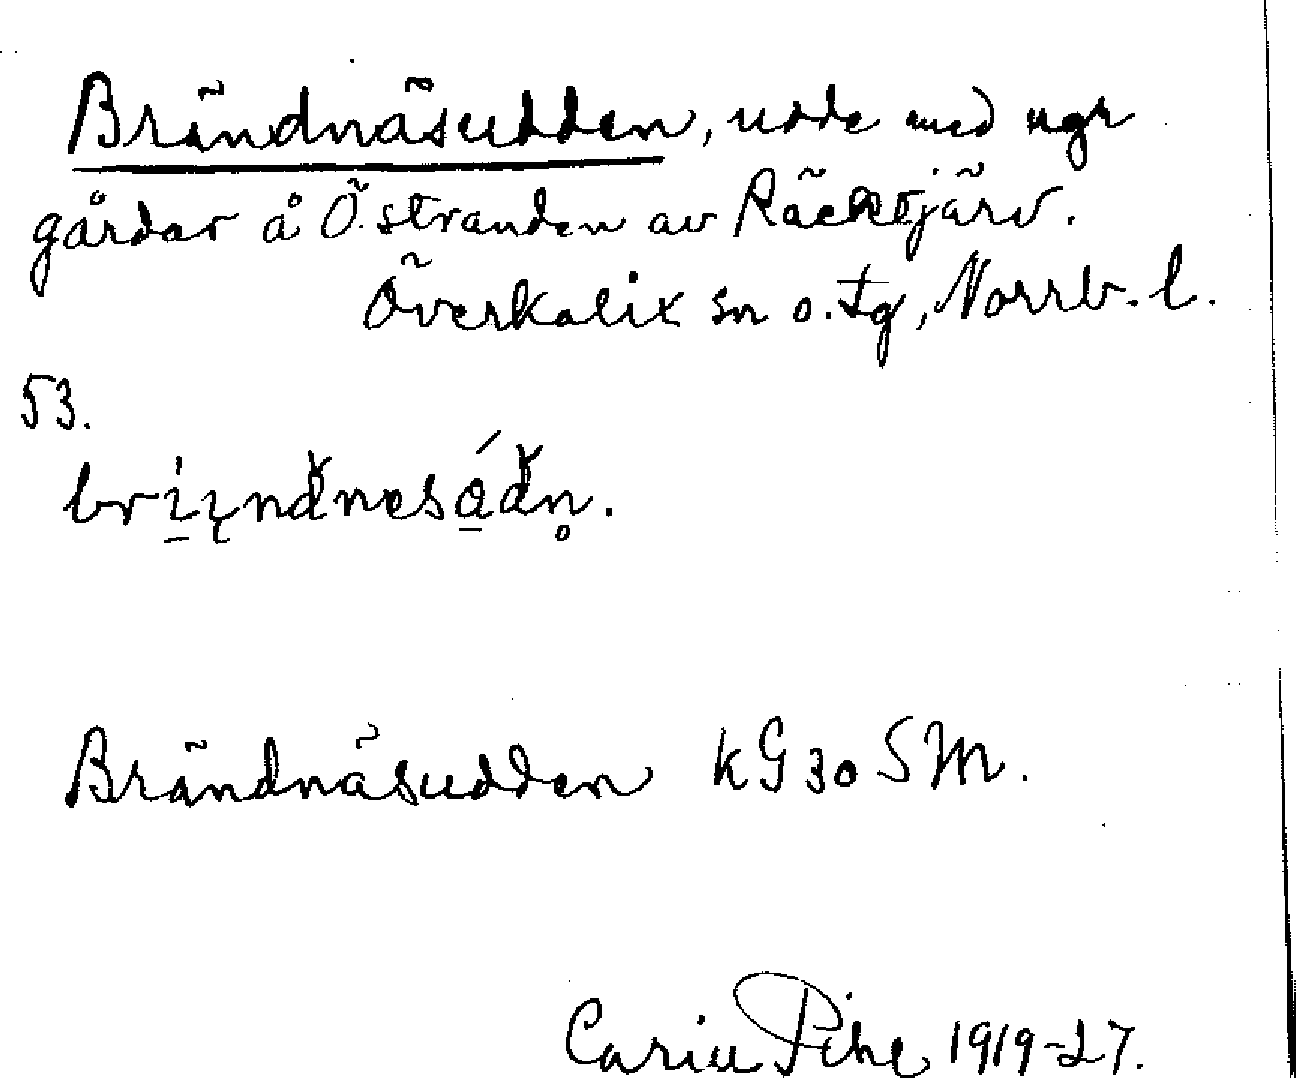 Brändnäsudden, udde med ngr
gårdar å Ö.stranden av Räcktjärv.
Överkalix sn o. tg, Norrb. l.
53.
Brändnäsudden KG 30 SM.
Carin Pihl 1919-27.